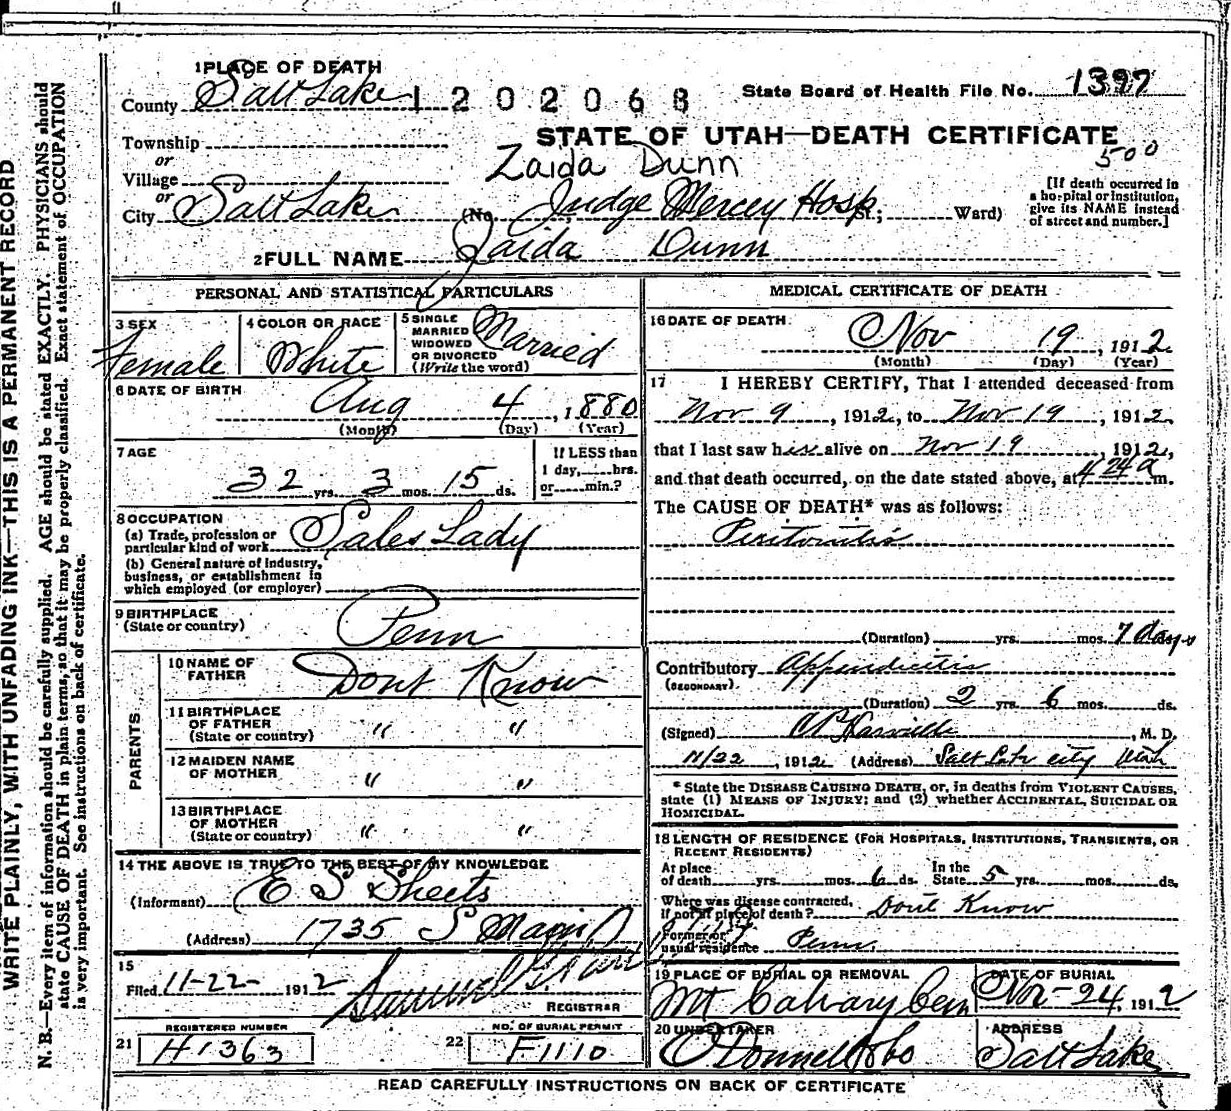 1 PLACE OF DEATH
County Salt Lake 1202068 State Board of Health File No. 1397
STATE OF UTAH—DEATH CERTIFICATE
Township
or
Village
or
City Salt Lake (No. Judge Mercey Hosp St.; Ward)
Zaida Dunn
500
[If death occurred in
a hospital or institution,
give its NAME instead
of street and number.]
2 FULL NAME Zaida Dunn
PERSONAL AND STATISTICAL PARTICULARS
3 SEX
Female
4 COLOR OR RACE
White
5 SINGLE
MARRIED
WIDOWED
OR DIVORCED
(Write the word)
Married
6 DATE OF BIRTH
Aug 4, 1880
(Month) (Day) (Year)
7 AGE
32 yrs. 3 mos. 15 ds.
If LESS than
1 day, hrs.
or min.?
8 OCCUPATION
(a) Trade, profession or
particular kind of work Sales Lady
(b) General nature of industry,
business, or establishment in
which employed (or employer)
9 BIRTHPLACE
(State or country) Penn
PARENTS
10 NAME OF
FATHER Dont Know
11 BIRTHPLACE
OF FATHER
(State or country) " "
12 MAIDEN NAME
OF MOTHER " "
13 BIRTHPLACE
OF MOTHER
(State or country) " "
14 THE ABOVE IS TRUE TO THE BEST OF MY KNOWLEDGE
(Informant) E S Sheets
(Address) 1735 S Main
15
Filed 11-22- 1912
REGISTRAR
REGISTERED NUMBER
21 H1363
NO. OF BURIAL PERMIT
22 F1110
MEDICAL CERTIFICATE OF DEATH
16 DATE OF DEATH
Nov 19, 1912
(Month) (Day) (Year)
17 I HEREBY CERTIFY, That I attended deceased from
Nov 9, 1912, to Nov 19, 1912,
that I last saw her alive on Nov 19, 1912,
and that death occurred, on the date stated above, at 4 24 a m.
The CAUSE OF DEATH* was as follows:
Peritonitis
(Duration) yrs. mos. 7 days
Contributory Appendicitis
(SECONDARY)
(Duration) 2 yrs. 6 mos. ds.
(Signed) M. D.
11/22, 1912 (Address) Salt Lake city Utah
* State the DISEASE CAUSING DEATH, or, in deaths from VIOLENT CAUSES,
state (1) MEANS OF INJURY; and (2) whether ACCIDENTAL, SUICIDAL OR
HOMICIDAL.
18 LENGTH OF RESIDENCE (FOR HOSPITALS, INSTITUTIONS, TRANSIENTS, OR
RECENT RESIDENTS)
At place
of death yrs. mos. 6 ds. In the
State 5 yrs. mos. ds.
Where was disease contracted,
if not at place of death? Dont Know
Former or
usual residence Penn.
19 PLACE OF BURIAL OR REMOVAL
Mt Calvary Cem
DATE OF BURIAL
Nov-24, 1912
20 UNDERTAKER
O'Donnell & Co
ADDRESS
Salt Lake
READ CAREFULLY INSTRUCTIONS ON BACK OF CERTIFICATE
WRITE PLAINLY, WITH UNFADING INK—THIS IS A PERMANENT RECORD
N. B.—Every item of information should be carefully supplied. AGE should be stated EXACTLY. PHYSICIANS should
state CAUSE OF DEATH in plain terms, so that it may be properly classified. Exact statement of OCCUPATION
is very important. See instructions on back of certificate.